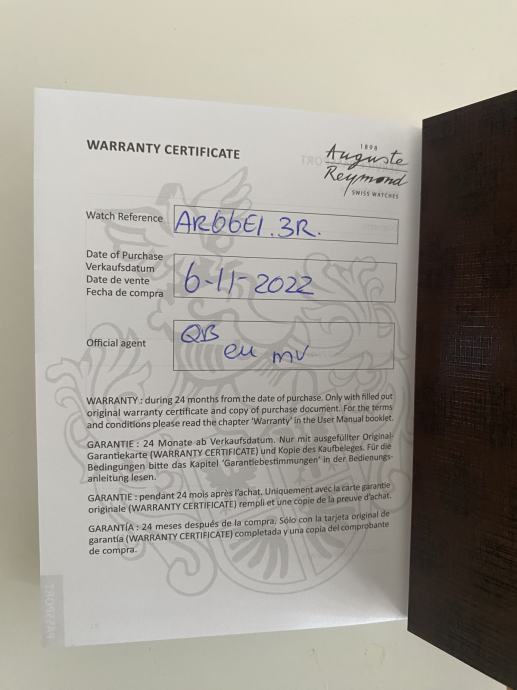 WARRANTY CERTIFICATE
1898
Auguste
Reymond
SWISS WATCHES
Watch Reference
AR06E1.3R.
Date of Purchase
Verkaufsdatum
Date de vente
Fecha de compra
6-11-2022
Official agent
QB
eu mv
WARRANTY : during 24 months from the date of purchase. Only with filled out
original warranty certificate and copy of purchase document. For the terms
and conditions please read the chapter 'Warranty' in the User Manual booklet.
GARANTIE : 24 Monate ab Verkaufsdatum. Nur mit ausgefüllter Original-
Garantiekarte (WARRANTY CERTIFICATE) und Kopie des Kaufbeleges. Für die
Bedingungen bitte das Kapitel 'Garantiebestimmungen' in der Bedienungs-
anleitung lesen.
GARANTIE : pendant 24 mois après l'achat. Uniquement avec la carte garantie
originale (WARRANTY CERTIFICATE) rempli et une copie de la preuve d'achat.
GARANTÍA : 24 meses después de la compra. Sólo con la tarjeta original de
garantía (WARRANTY CERTIFICATE) completada y una copia del comprobante
de compra.